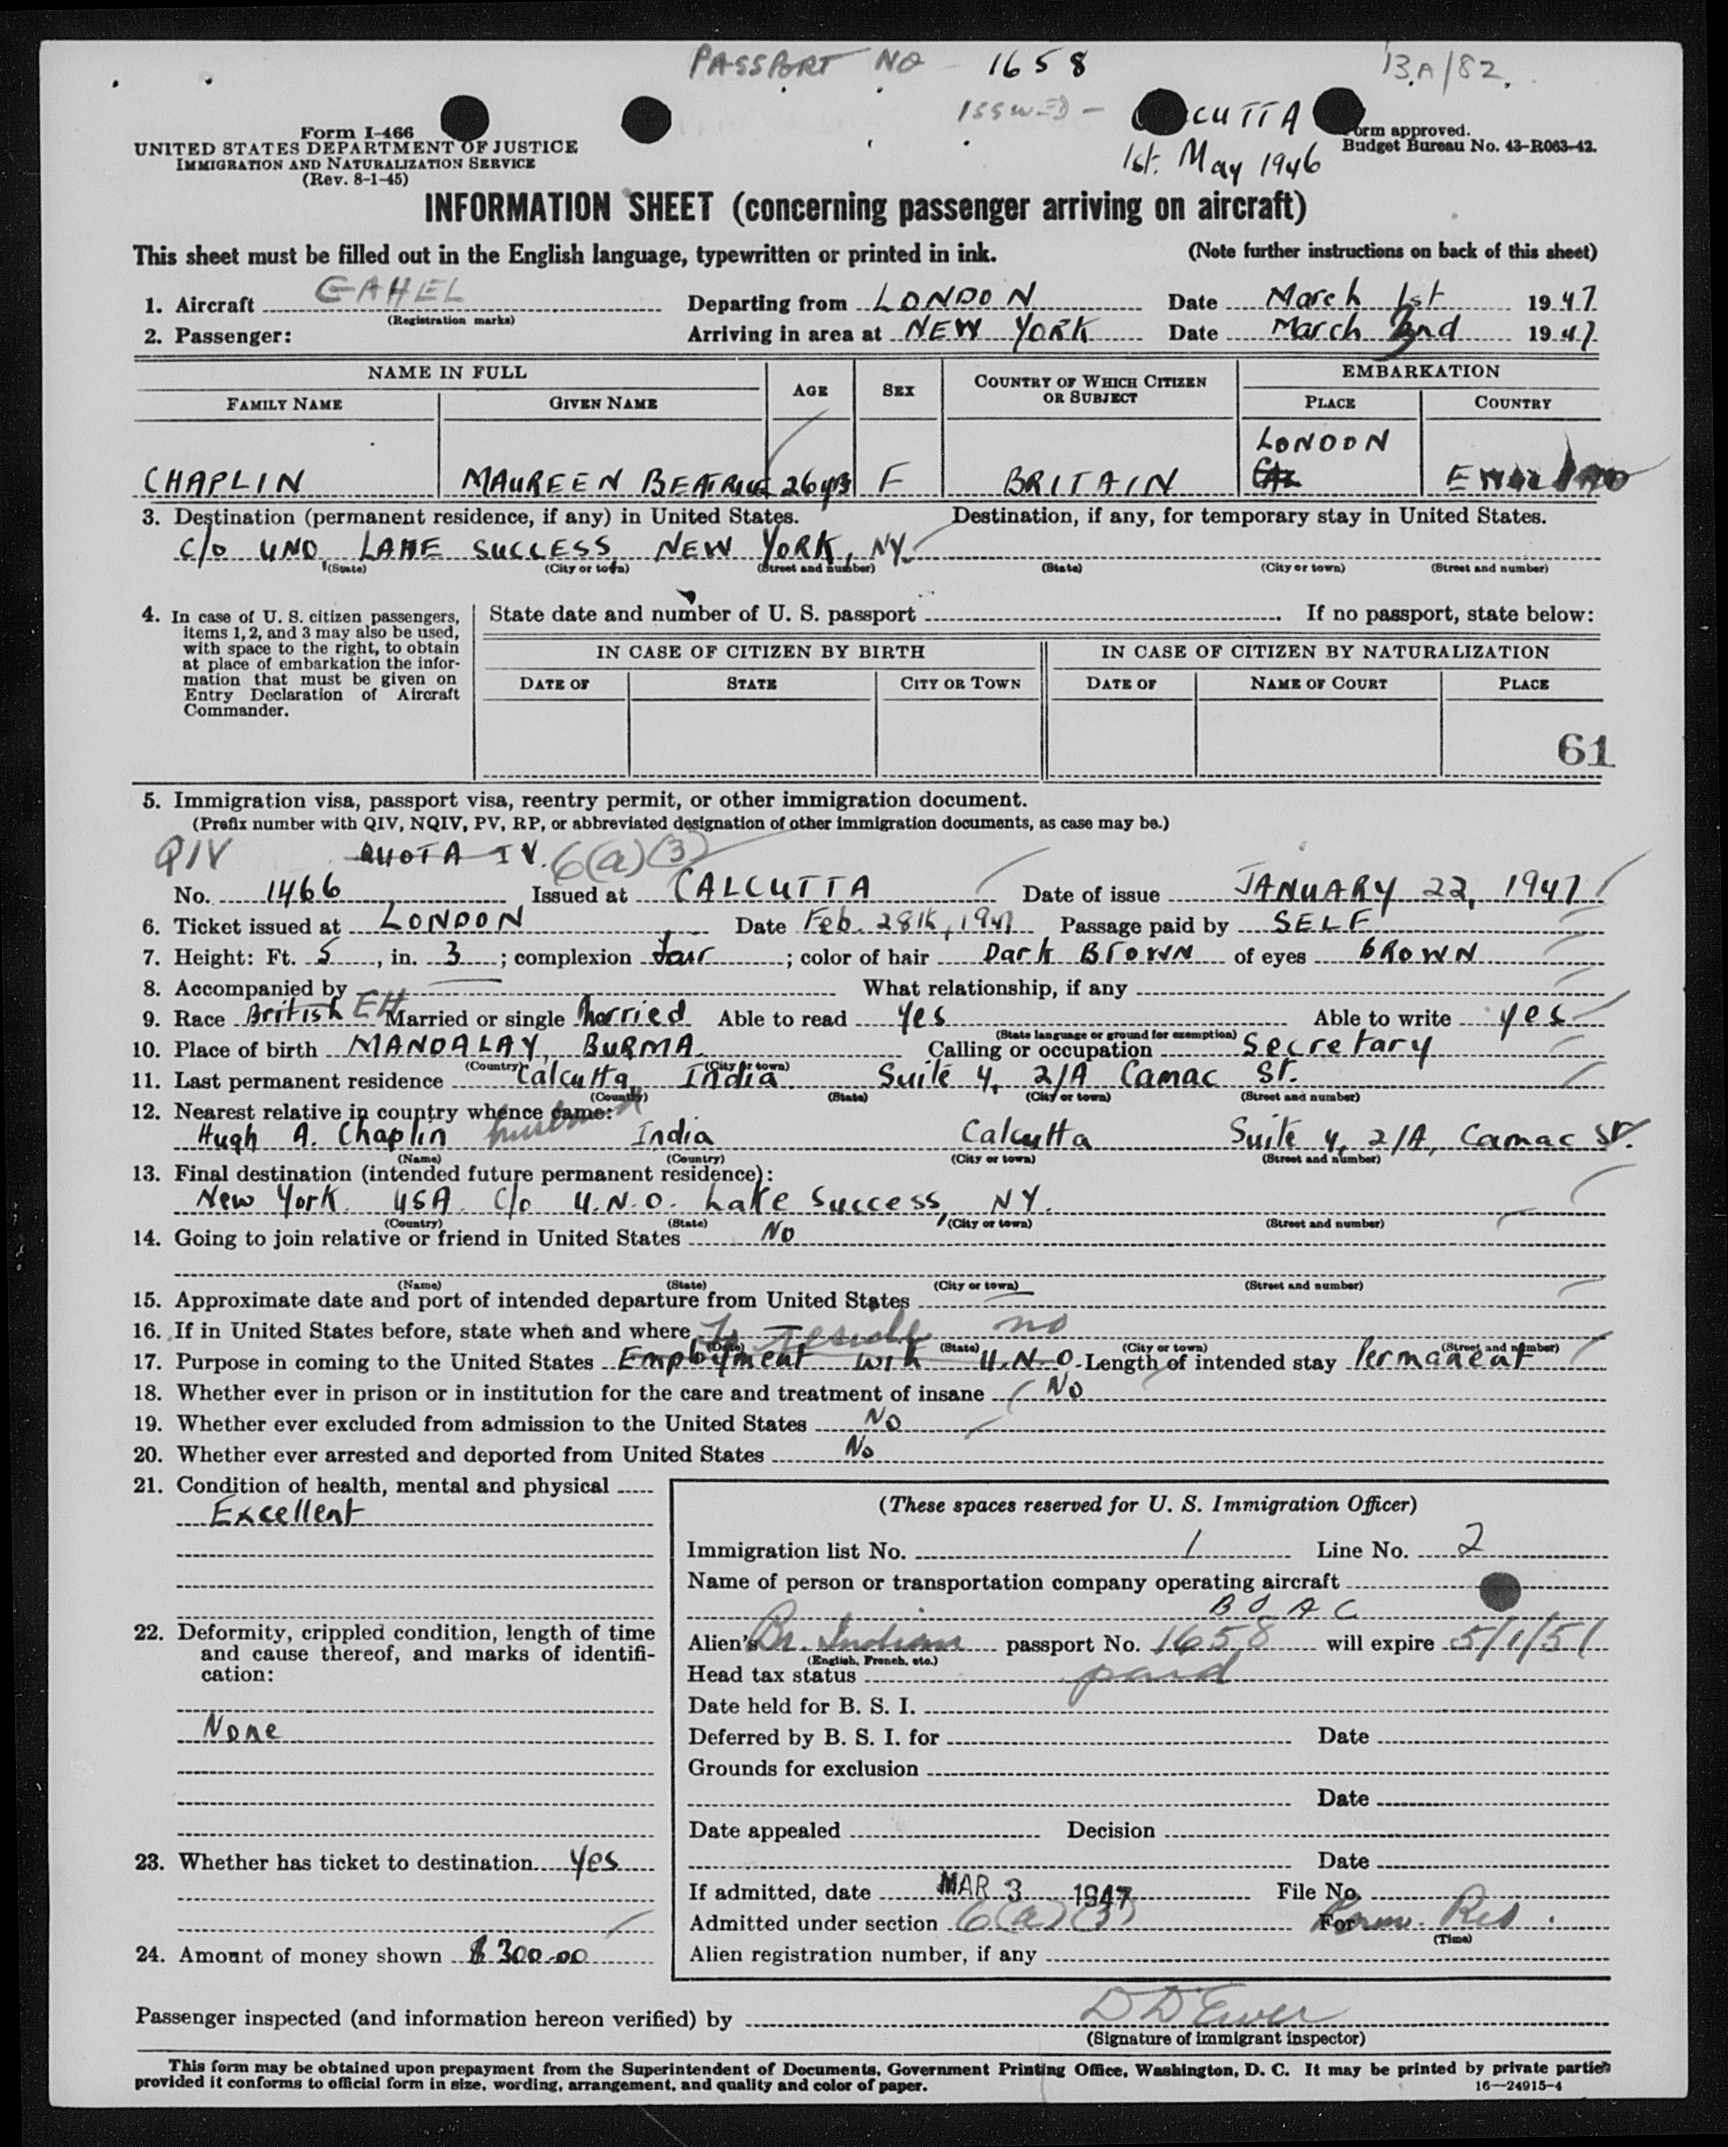 PASSPORT NO - 1658
13.A/82.
ISSUED - CUTTA
1st. May 1946
Form I-466
UNITED STATES DEPARTMENT OF JUSTICE
IMMIGRATION AND NATURALIZATION SERVICE
(Rev. 8-1-45)
Form approved.
Budget Bureau No. 43-R063-42.
INFORMATION SHEET (concerning passenger arriving on aircraft)
This sheet must be filled out in the English language, typewritten or printed in ink. (Note further instructions on back of this sheet)
1. Aircraft GAHEL Departing from LONDON Date March 1st 1947
(Registration marks)
2. Passenger: Arriving in area at NEW YORK Date March 3nd 1947
NAME IN FULL AGE SEX COUNTRY OF WHICH CITIZEN OR SUBJECT EMBARKATION
FAMILY NAME GIVEN NAME PLACE COUNTRY
LONDON
CHAPLIN MAUREEN BEATRICE 26 yrs F BRITAIN
3. Destination (permanent residence, if any) in United States. Destination, if any, for temporary stay in United States.
C/O UNO LAKE SUCCESS NEW YORK, NY.
(State) (City or town) (Street and number) (State) (City or town) (Street and number)
4. In case of U. S. citizen passengers, items 1, 2, and 3 may also be used, with space to the right, to obtain at place of embarkation the information that must be given on Entry Declaration of Aircraft Commander.
State date and number of U. S. passport . If no passport, state below:
IN CASE OF CITIZEN BY BIRTH IN CASE OF CITIZEN BY NATURALIZATION
DATE OF STATE CITY OR TOWN DATE OF NAME OF COURT PLACE
61
5. Immigration visa, passport visa, reentry permit, or other immigration document.
(Prefix number with QIV, NQIV, PV, RP, or abbreviated designation of other immigration documents, as case may be.)
QIV QUOTA IV. 6(a)(3)
No. 1466 Issued at CALCUTTA Date of issue JANUARY 22, 1947
6. Ticket issued at LONDON Date Feb. 28th, 1947 Passage paid by SELF
7. Height: Ft. 5, in. 3; complexion fair; color of hair Dark Brown of eyes BROWN
8. Accompanied by What relationship, if any
9. Race British EH Married or single Married Able to read Yes Able to write Yes
(State language or ground for exemption)
10. Place of birth MANDALAY, BURMA. Calling or occupation Secretary
(Country) (City or town)
11. Last permanent residence Calcutta, India Suite 4, 2/A Camac St.
(Country) (State) (City or town) (Street and number)
12. Nearest relative in country whence came:
Hugh A. Chaplin husband India Calcutta Suite 4, 2/A, Camac St.
(Name) (Country) (City or town) (Street and number)
13. Final destination (intended future permanent residence):
New York USA. C/o U.N.O. Lake Success, NY.
(Country) (State) (City or town) (Street and number)
14. Going to join relative or friend in United States No
(Name) (State) (City or town) (Street and number)
15. Approximate date and port of intended departure from United States
16. If in United States before, state when and where no
(Date) (State) (City or town) (Street and number)
To reside
17. Purpose in coming to the United States Employment with U.N.O. Length of intended stay Permanent
18. Whether ever in prison or in institution for the care and treatment of insane No
19. Whether ever excluded from admission to the United States No
20. Whether ever arrested and deported from United States No
21. Condition of health, mental and physical
Excellent
22. Deformity, crippled condition, length of time and cause thereof, and marks of identification:
None
23. Whether has ticket to destination Yes
24. Amount of money shown $300.00
(These spaces reserved for U. S. Immigration Officer)
Immigration list No. 1 Line No. 2
Name of person or transportation company operating aircraft
B O A C
Alien's Br. Indian passport No. 1658 will expire 5/1/51
(English, French, etc.)
Head tax status paid
Date held for B. S. I.
Deferred by B. S. I. for Date
Grounds for exclusion
Date
Date appealed Decision
Date
If admitted, date MAR 3 1947 File No.
Admitted under section 6(a)(3) For Perm. Res.
(Time)
Alien registration number, if any
Passenger inspected (and information hereon verified) by D D Ewer
(Signature of immigrant inspector)
This form may be obtained upon prepayment from the Superintendent of Documents, Government Printing Office, Washington, D. C. It may be printed by private parties
provided it conforms to official form in size, wording, arrangement, and quality and color of paper. 16—24915-4